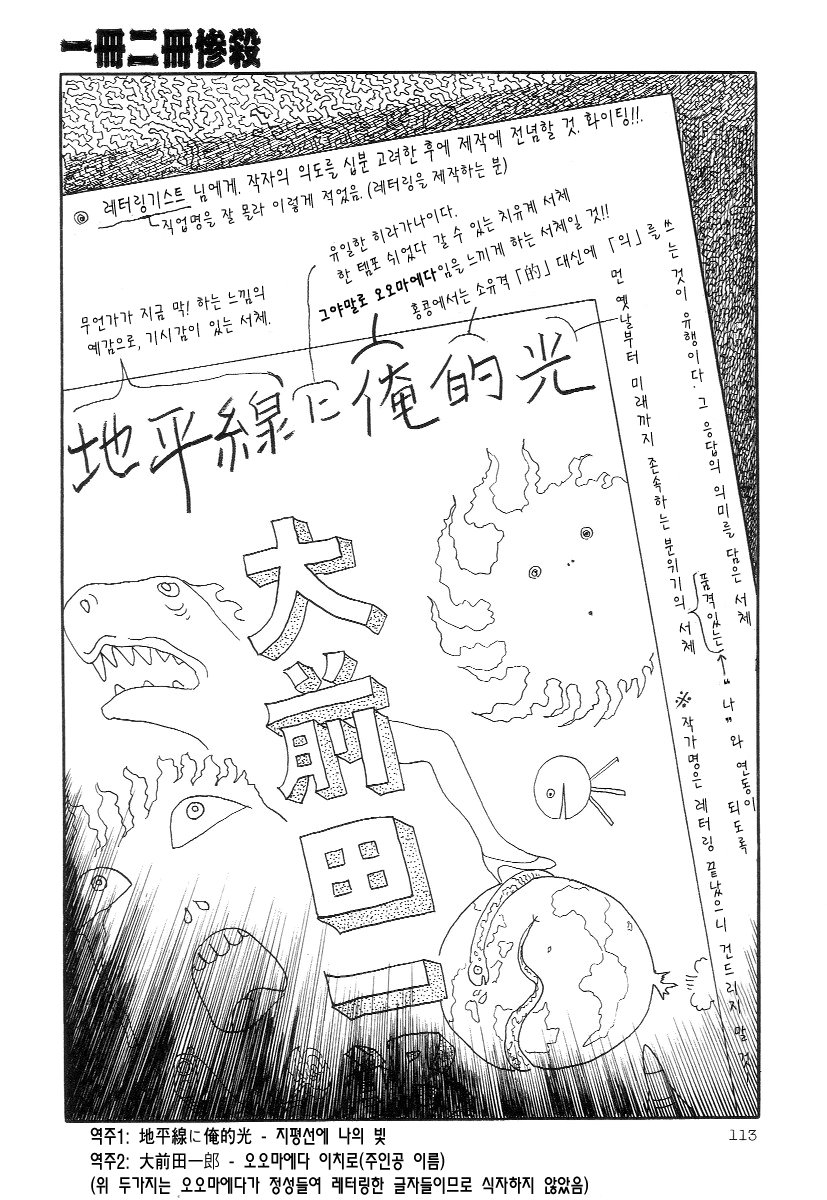 一冊二冊惨殺
◎ 레터링기스트 님에게. 작자의 의도를 십분 고려한 후에 제작에 전념할 것. 화이팅!!.
직업명을 잘 몰라 이렇게 적었음. (레터링을 제작하는 분)
무언가가 지금 막! 하는 느낌의
예감으로, 기시감이 있는 서체.
유일한 히라가나이다.
한 템포 쉬었다 갈 수 있는 치유계 서체
그야말로 오오마에다임을 느끼게 하는 서체일 것!!
홍콩에서는 소유격「的」대신에 「의」를 쓰는 것이 유행이다. 그 응답의 의미를 담은 서체
먼 옛날부터 미래까지 존속하는 분위기의 서체
품격있는
"나"와 연동이 되도록
※ 작가명은 레터링 끝났으니 건드리지 말 것.
地平線に俺的光
大前田一
역주1: 地平線に俺的光 - 지평선에 나의 빛
역주2: 大前田一郎 - 오오마에다 이치로(주인공 이름)
(위 두가지는 오오마에다가 정성들여 레터링한 글자들이므로 식자하지 않았음)
113